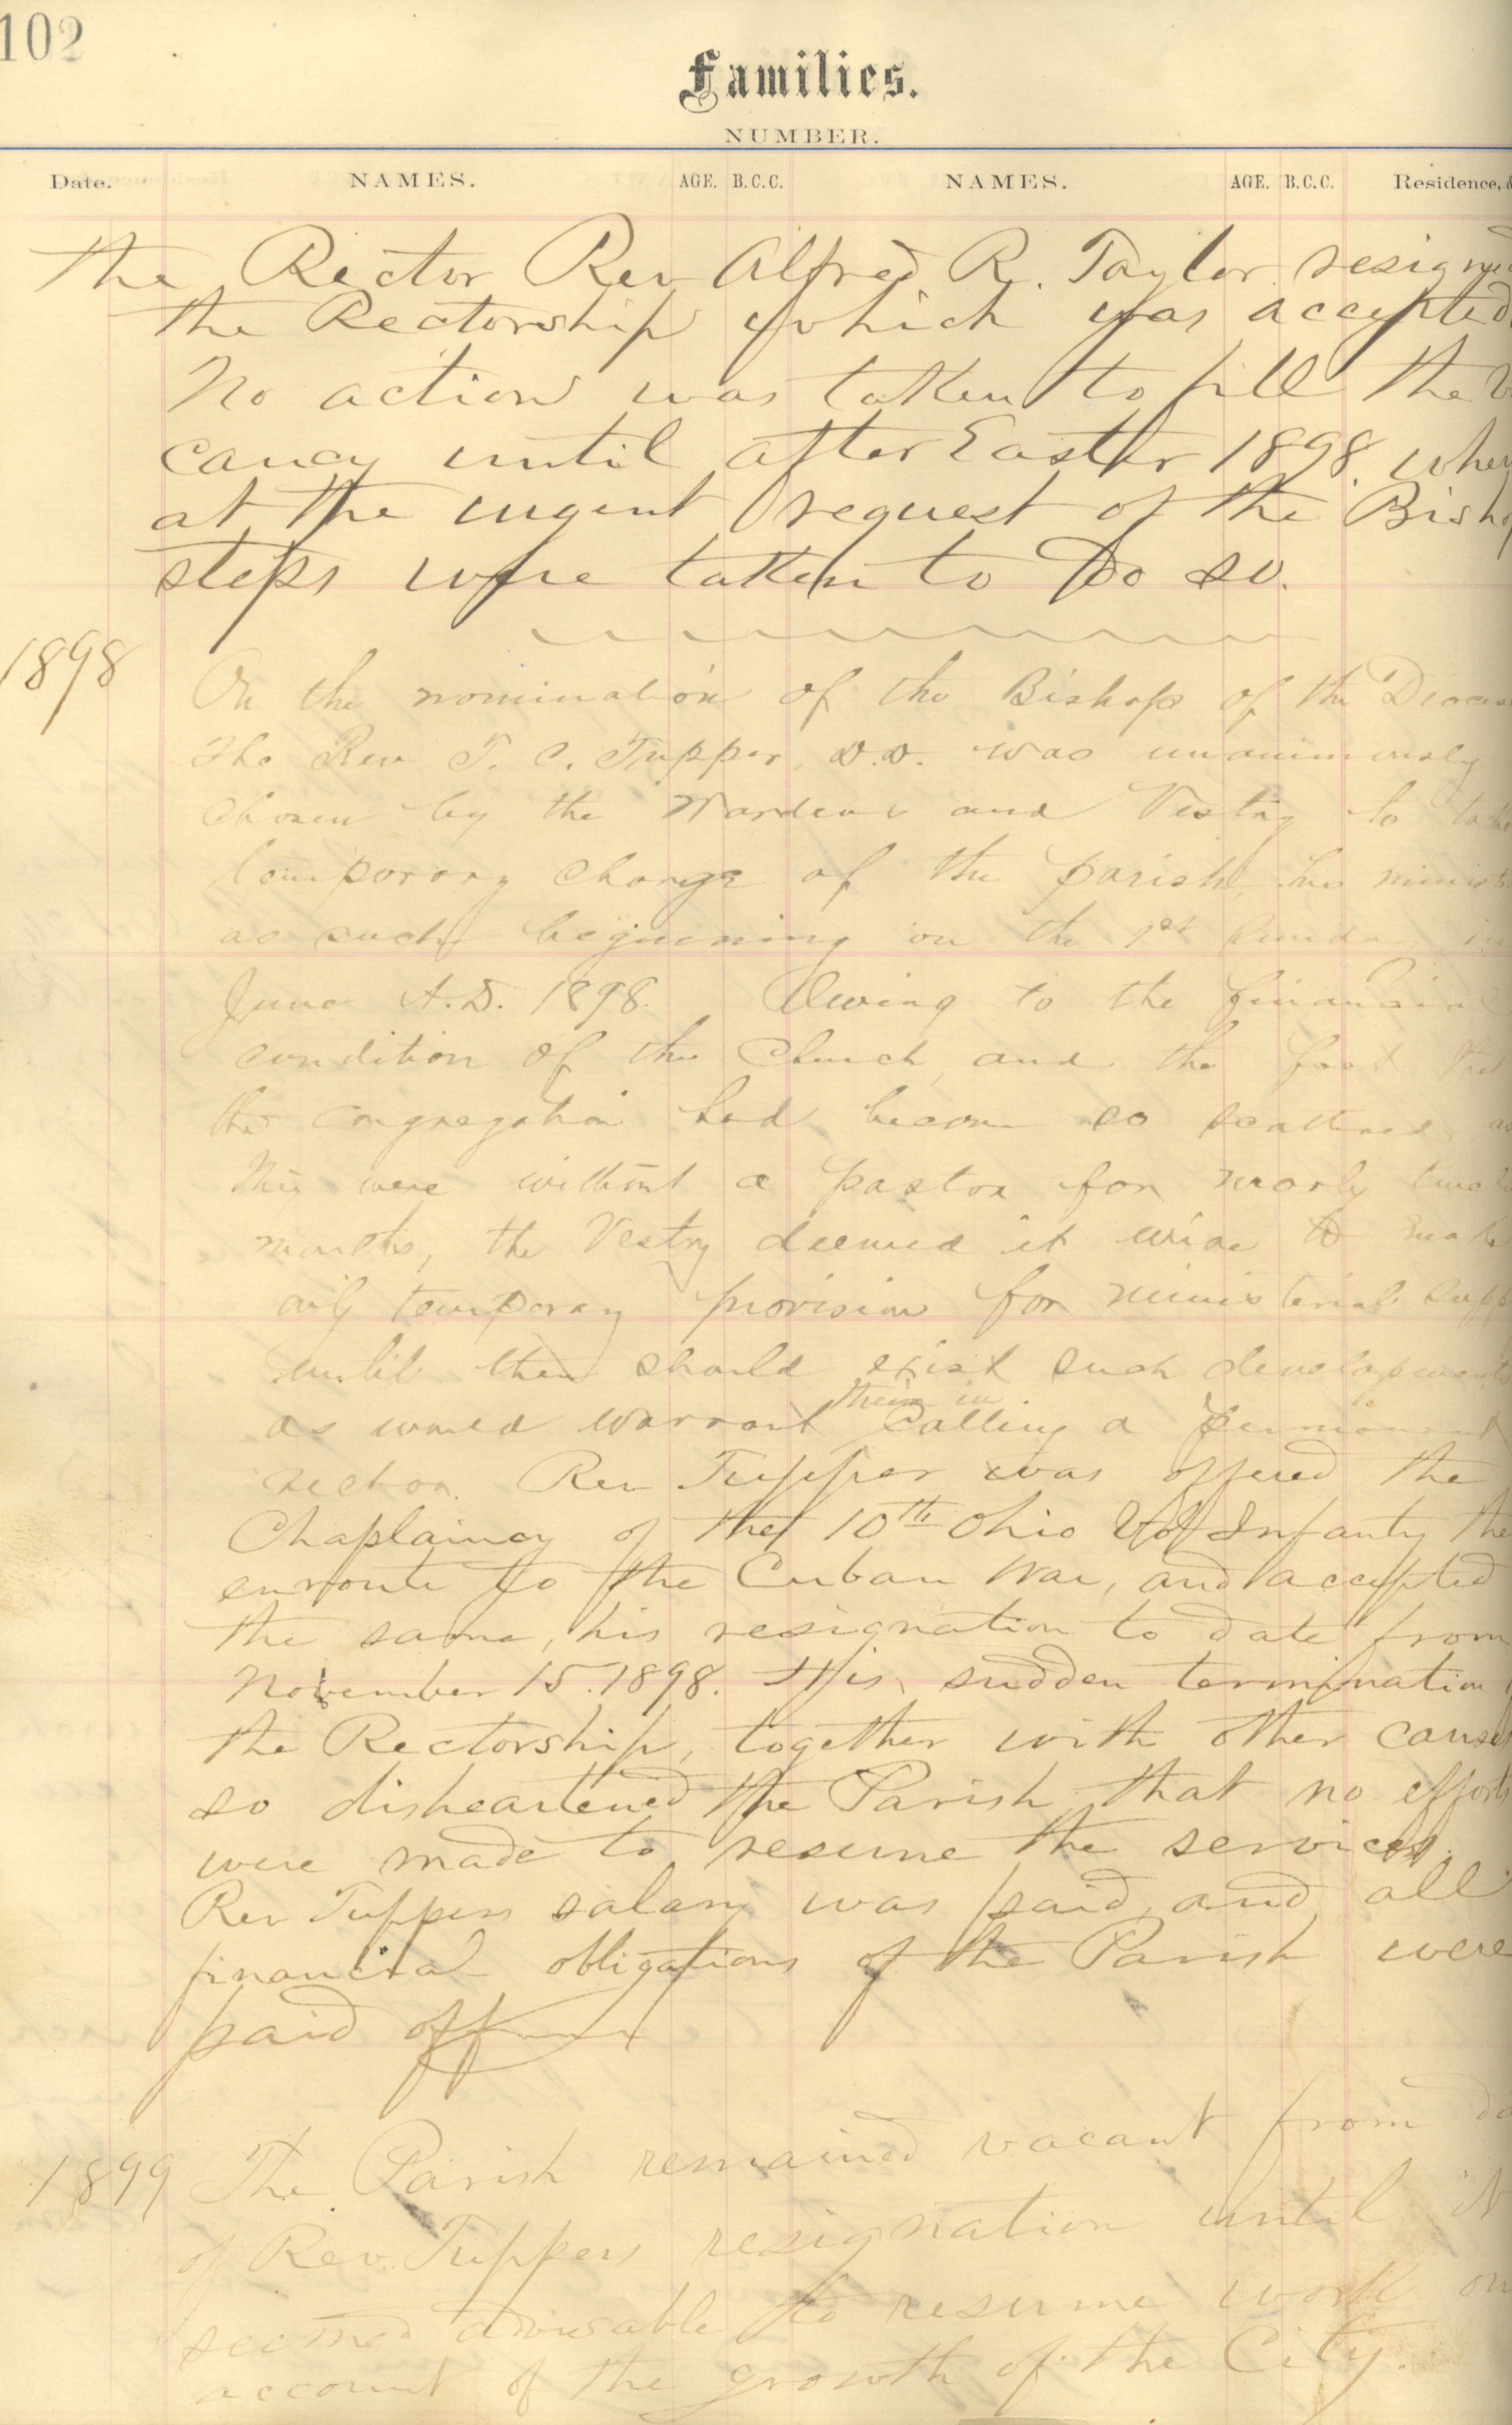 102
Families.
NUMBER.
Date. NAMES. AGE. B.C.C. NAMES. AGE. B.C.C. Residence, &
the Rector Rev Alfred R. Taylor resigned
the Rectorship which was accepted
No action was taken to fill the va
cancy until after Easter 1898. when
at the urgent request of the Bishop
steps were taken to do so.
1898
On the nomination of the Bishop of the Diocese
the Rev T. C. Tupper, D.D. was unanimously
chosen by the Wardens and Vestry to take
temporary charge of the parish, his minist
as such beginning on the 1st Sunday in
June A.D. 1898. Owing to the financial
condition of the Church, and the fact that
the congregation had become so scattered as
they were without a pastor for nearly twelve
months, the Vestry deemed it wise to make
only temporary provision for ministerial supp
until there should exist such developments
as would warrant them in calling a permanent
rector. Rev Tupper was offered the
Chaplaincy of the 10th Ohio Vol Infanty the
enroute to the Cuban War, and accepted
the same, his resignation to date from
November 15. 1898. This sudden termination
the Rectorship, together with other causes
so disheartened the Parish that no efforts
were made to resume the services.
Rev Tuppers salary was paid, and all
financial obligations of the Parish were
paid off
1899 The Parish remained vacant from da
of Rev. Tuppers resignation until it
seemed advisable to resume work on
account of the growth of the City.